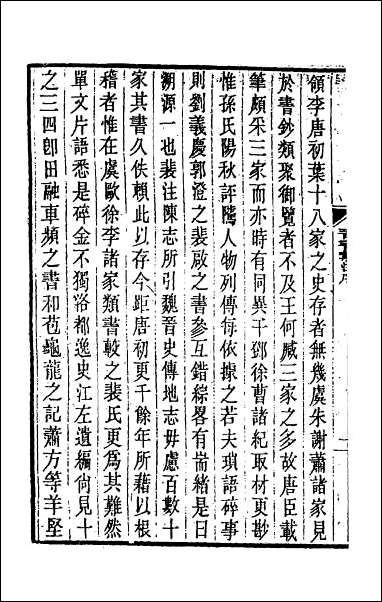 領李唐初葉十八家之史存者無幾虞朱謝蕭諸家見
於書鈔類聚御覽者不及王何臧三家之多故唐臣載
筆頗采三家而亦時有同異干鄧徐曹諸紀取材更尠
惟孫氏陽秋評騭人物列傳每依據之若夫瑣語碎事
則劉義慶郭澄之裴啟之書參互錯綜畧有耑緒是曰
溯源一也裴注陳志所引魏晉史傳地志毋慮百數十
家其書久佚賴此以存今距唐初更千餘年所藉以根
稽者惟在虞歐徐李諸家類書較之裴氏更爲其難然
單文片語悉是碎金不獨洛都逸史江左遺編尙見十
之三四卽田融車頻之書和苞龜龍之記蕭方等羊堅